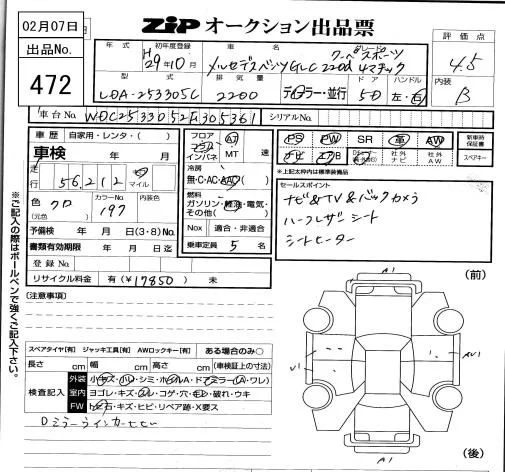 02月07日
ZIP オークション出品票
出品No.
472
評価点
4.5
内装
B
年式
初年度登録
H 29年10月
車名
メルセデスベンツ GLC 220d 4マチック
クーペ スポーツ
型式
LDA-253305C
排気量
2200
ディーラー・並行
ドア
5D
ハンドル
左・右
車台No.
WDC2533052F305361
シリアルNo.
車歴 自家用・レンタ・( )
車検 年 月
走行
56,212
マイル
色
クロ
(元色)
カラーNo.
197
内装色
予備検 年 月 日(3・8)No.
書類有効期限 年 月 日迄
登録No.
リサイクル料金 有(¥17850) 未
フロア
コラム
インパネ
A7
MT
速
冷房
無・C・AC・AAC
燃料
ガソリン・軽油・電気・
その他( )
Nox 適合・非適合
乗車定員 5 名
PS PW SR 革 AW
ナビ エアB
社外ナビ
社外AW
新車時保証書
スペアキー
*上記太枠内は標準装備品
セールスポイント
ナビ&TV&バックカメラ
ハーフレザーシート
シートヒーター
※ご記入の際はボールペンで強くご記入下さい。
(注意事項)
スペアタイヤ[有] ジャッキ工具[有] AWロックキー[有] ある場合のみ○
長さ cm 幅 cm 高さ cm (車検証上の寸法)
検査記入
外装 小キズ・小ヘコ・シミ・ホイルA・ドアミラー(A・ワレ)
室内 ヨゴレ・キズ・スレ・コゲ・穴・モレ・破れ・ウキ
FW トビ石・キズ・ヒビ・リペア跡・X要ス
Dミラーウインカーヒビ
(前)
A1
V1
AV1
A1
(後)